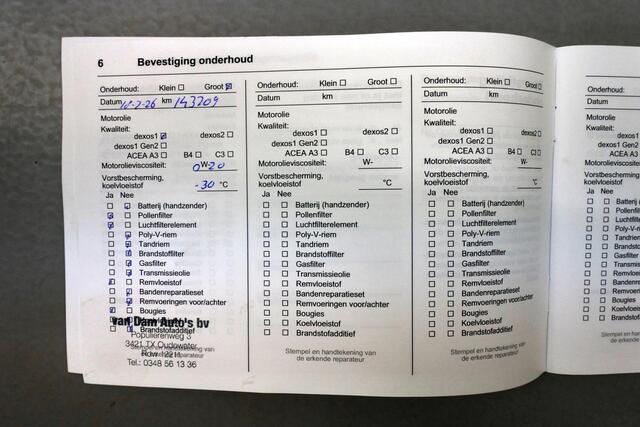 6 Bevestiging onderhoud
Onderhoud: Klein Groot
Datum km 143209
Motorolie
Kwaliteit:
dexos1 dexos2
dexos1 Gen2
ACEA A3 B4 C3
Motorolieviscositeit: 0W-20
Vorstbescherming,
koelvloeistof -30 °C
Ja Nee
Batterij (handzender)
Pollenfilter
Luchtfilterelement
Poly-V-riem
Tandriem
Brandstoffilter
Gasfilter
Transmissieolie
Remvloeistof
Bandenreparatieset
Remvoeringen voor/achter
Bougies
Koelvloeistof
Brandstofadditief
van Dam Auto's bv
Populierenweg 3
3421 TX Oudewater
Tel.: 0348 56 13 36
Onderhoud: Klein Groot
Datum km
Motorolie
Kwaliteit:
dexos1 dexos2
dexos1 Gen2
ACEA A3 B4 C3
Motorolieviscositeit: W-
Vorstbescherming,
koelvloeistof °C
Ja Nee
Batterij (handzender)
Pollenfilter
Luchtfilterelement
Poly-V-riem
Tandriem
Brandstoffilter
Gasfilter
Transmissieolie
Remvloeistof
Bandenreparatieset
Remvoeringen voor/achter
Bougies
Koelvloeistof
Brandstofadditief
Stempel en handtekening van
de erkende reparateur
Onderhoud: Klein Groot
Datum km
Motorolie
Kwaliteit:
dexos1 dexos2
dexos1 Gen2
ACEA A3 B4 C3
Motorolieviscositeit: W-
Vorstbescherming,
koelvloeistof °C
Ja Nee
Batterij (handzender)
Pollenfilter
Luchtfilterelement
Poly-V-riem
Tandriem
Brandstoffilter
Gasfilter
Transmissieolie
Remvloeistof
Bandenreparatieset
Remvoeringen voor/achter
Bougies
Koelvloeistof
Brandstofadditief
Stempel en handtekening van
de erkende reparateur
Onderhoud:
Datum
Motorolie
Kwaliteit:
Motorolieviscos
Vorstbescherm
koelvloeistof
Ja Nee